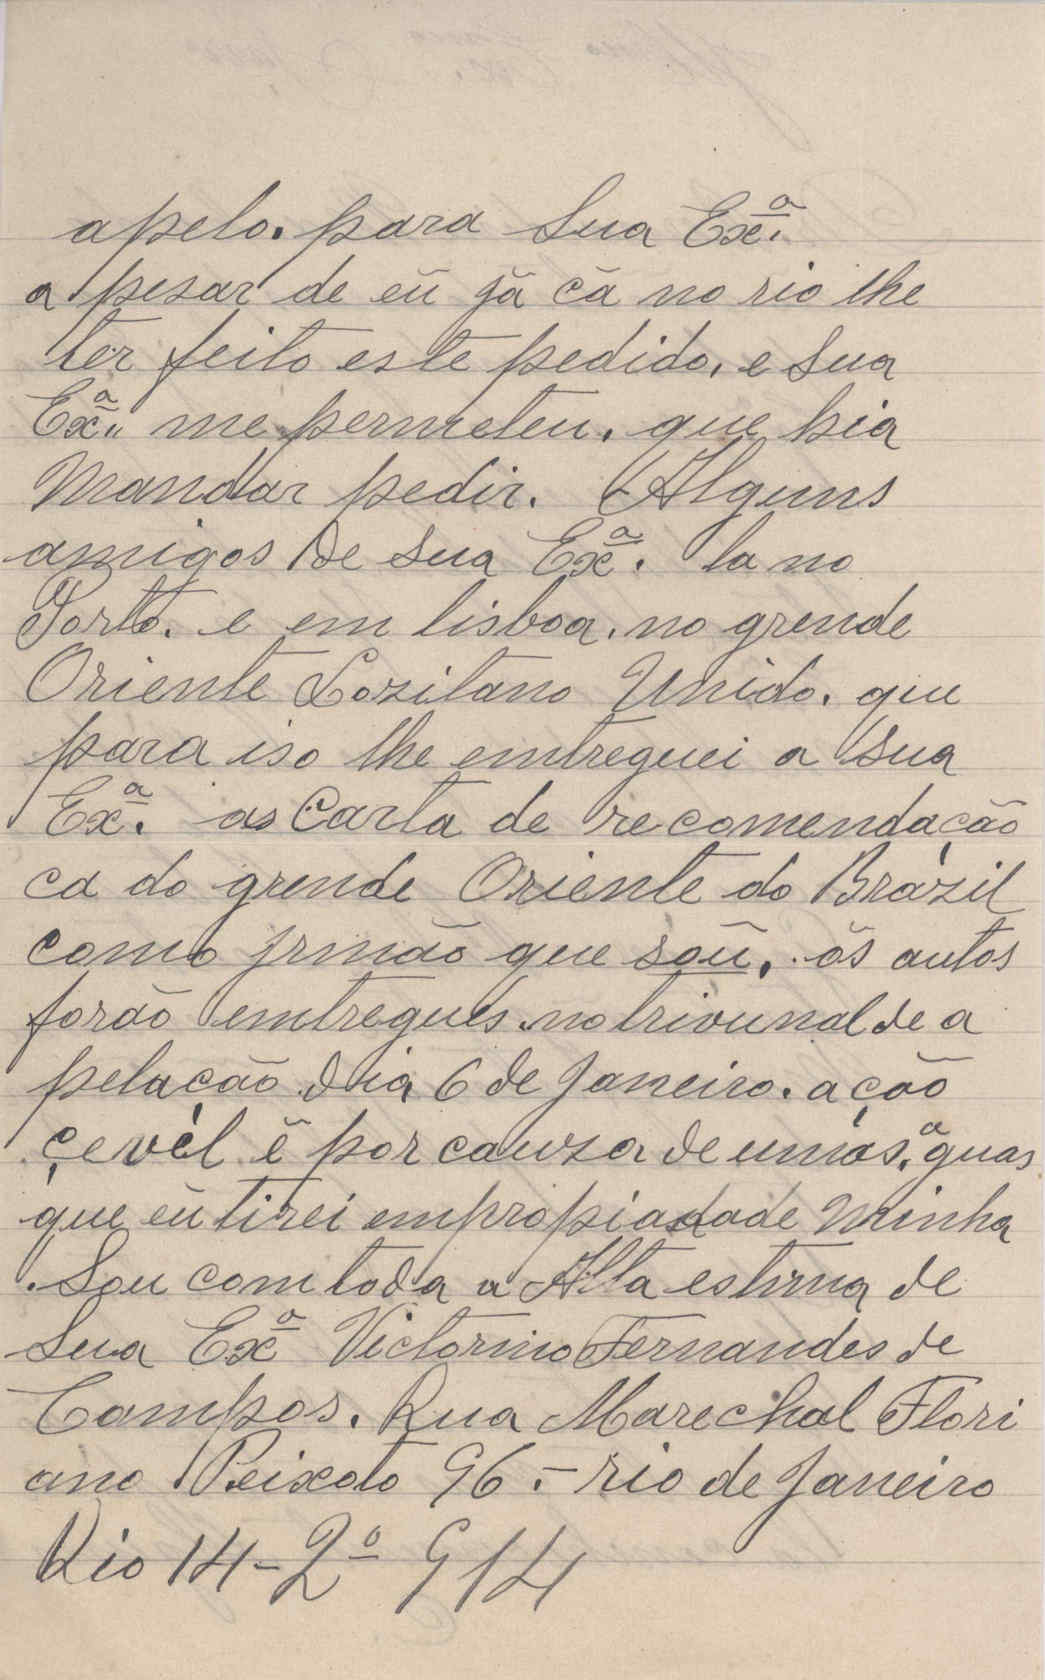 apelo. para Sua Exª.
a pesar de eŭ jă că no rio lhe
ter feito este pedido, e Sua
Exª. me permeteu. que hia
Mandar pedir. Alguns
amigos de Sua Exª. la no
Porto. e em lisboa. no grende
Oriente Lozitano Unido. que
para iso lhe emtreguei a Sua
Exª. as Carta de recomendação
ca do grende Oriente do Brazil
como jrmão que soŭ. ŏs autos
forão emtregues. no trivunal de a
pelação dia 6 de Janeiro. ação
çevél ĕ por cauza de umas. aguas
que eŭ tirei empropiadade Minha
. Sou com toda a Alta estima de
Sua Exª Victorino Fernandes de
Campos. Rua Marechal Flori
ano Peixoto 96. - rio de Janeiro
Rio 14-2º 914